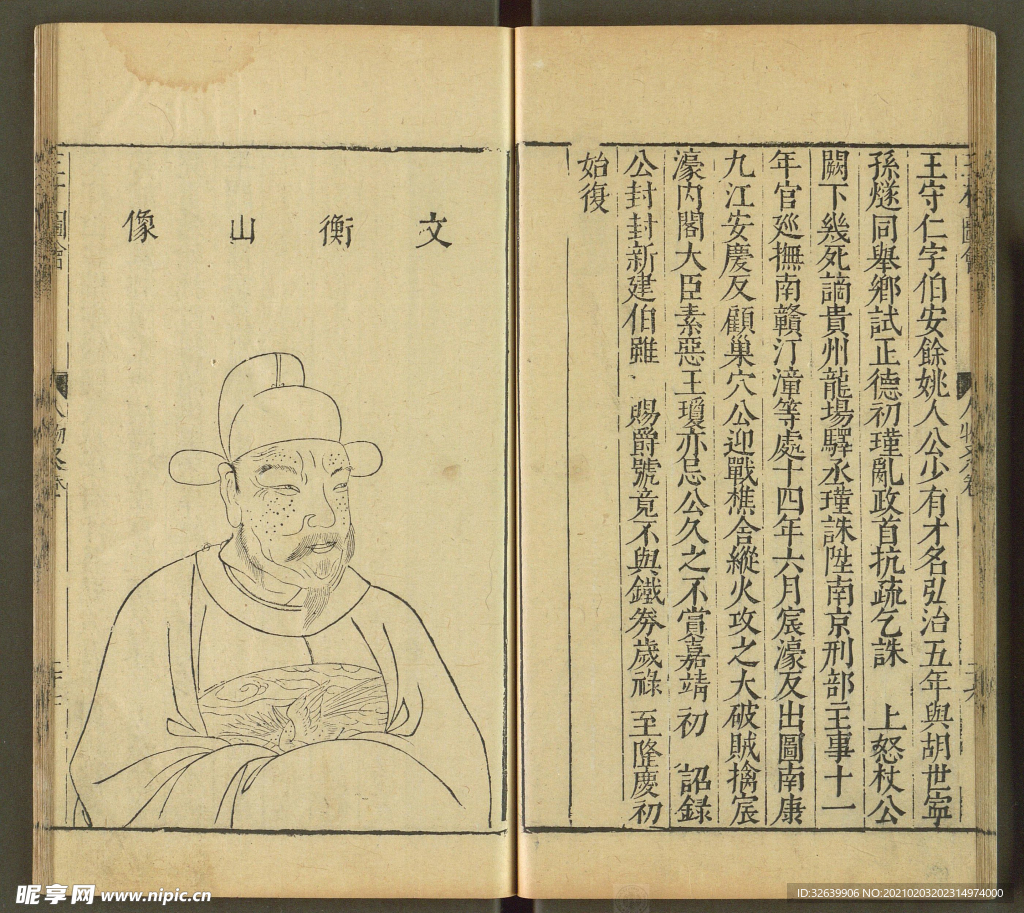 王守仁字伯安餘姚人公少有才名弘治五年與胡世寧
孫燧同舉鄉試正德初瑾亂政首抗疏乞誅 上怒杖公
闕下幾死謫貴州龍場驛丞瑾誅陞南京刑部主事十一
年官廵撫南贛汀漳等處十四年六月宸濠反出圖南康
九江安慶反顧巢穴公迎戰樵舍縱火攻之大破賊擒宸
濠內閣大臣素惡王瓊亦忌公久之不賞嘉靖初 詔録
公封封新建伯雖 賜爵號竟不與鐵券歲祿 至隆慶初
始復
文衡山像
昵享网 www.nipic.cn
ID:32639906 NO:20210203202314974000